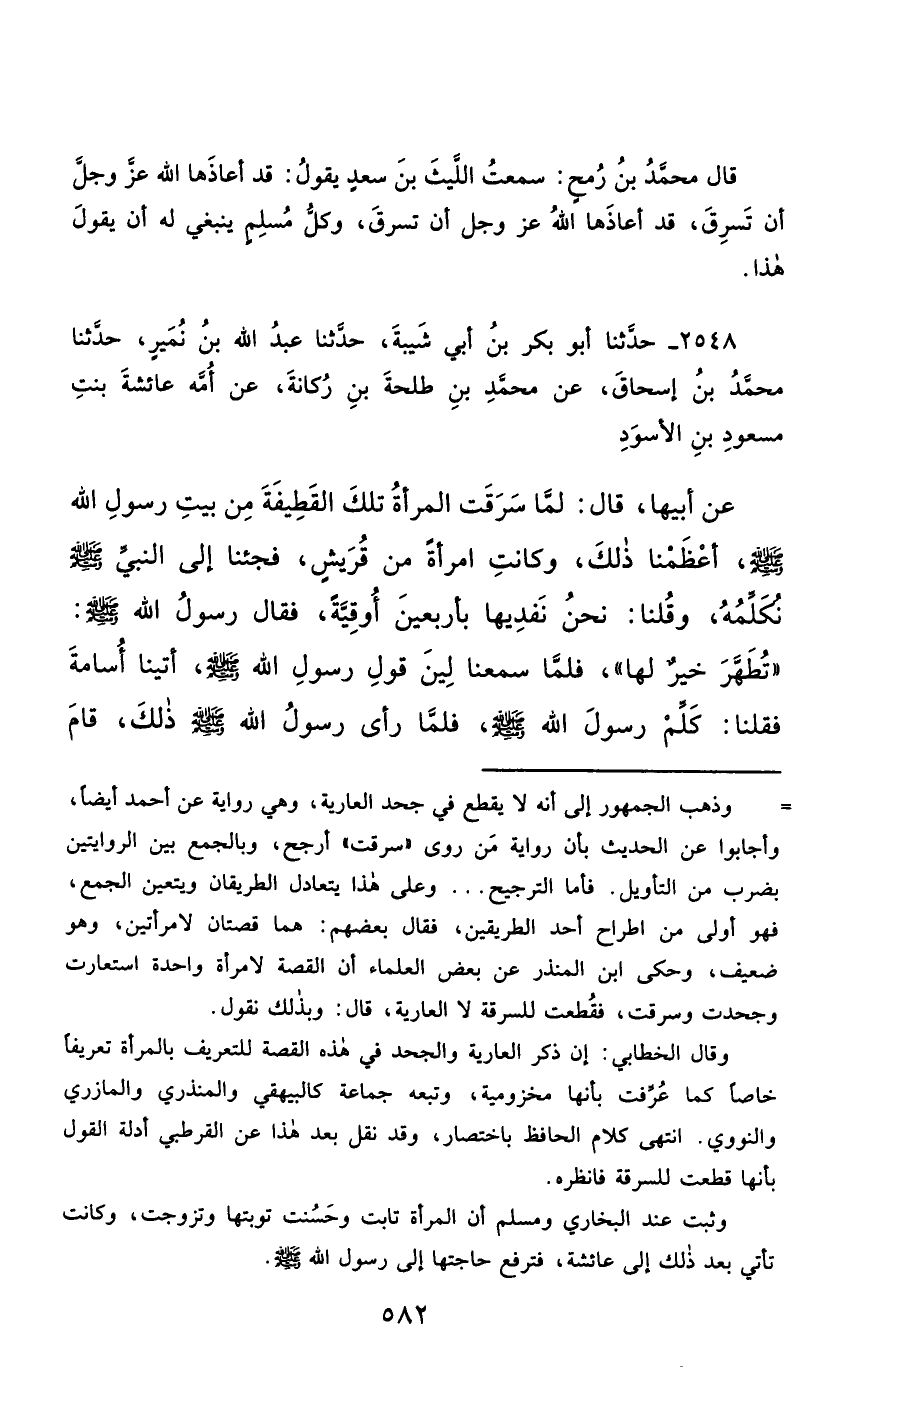 قال محمَّدُ بنُ رُمحٍ: سمعتُ اللَّيثَ بنَ سعدٍ يقولُ: قد أعاذَها الله عزَّ وجلَّ
أن تَسرِقَ، قد أعاذَها اللهُ عز وجل أن تسرقَ، وكلُّ مُسلِمٍ ينبغي له أن يقولَ
هٰذا.
٢٥٤٨ـ حدَّثنا أبو بكر بنُ أبي شَيبةَ، حدَّثنا عبدُ الله بنُ نُمَيرٍ، حدَّثنا
محمَّدُ بنُ إسحاقَ، عن محمَّدِ بنِ طلحةَ بنِ رُكانةَ، عن أُمَّه عائشةَ بنتِ
مسعودِ بنِ الأسوَدِ
عن أبيها، قال: لمَّا سَرَقَت المرأةُ تلكَ القَطِيفَةَ مِن بيتِ رسولِ الله
ﷺ، أعْظَمْنا ذٰلكَ، وكانتِ امرأةً من قُرَيشٍ، فجئنا إلى النبيِّ ﷺ
نُكَلِّمُهُ، وقُلنا: نحنُ نَفدِيها بأربعينَ أُوقِيَّةً، فقال رسولُ الله ﷺ:
«تُطَهَّرَ خيرٌ لها»، فلمَّا سمعنا لِينَ قولِ رسولِ الله ﷺ، أتينا أُسامةَ
فقلنا: كَلِّمْ رسولَ الله ﷺ، فلمَّا رأى رسولُ الله ﷺ ذٰلكَ، قامَ
= وذهب الجمهور إلى أنه لا يقطع في جحد العارية، وهي رواية عن أحمد أيضاً،
وأجابوا عن الحديث بأن رواية مَن روى «سرقت» أرجح، وبالجمع بين الروايتين
بضرب من التأويل. فأما الترجيح... وعلى هٰذا يتعادل الطريقان ويتعين الجمع،
فهو أولى من اطراح أحد الطريقين، فقال بعضهم: هما قصتان لامرأتين، وهو
ضعيف، وحكى ابن المنذر عن بعض العلماء أن القصة لامرأة واحدة استعارت
وجحدت وسرقت، فقُطعت للسرقة لا العارية، قال: وبذٰلك نقول.
وقال الخطابي: إن ذكر العارية والجحد في هٰذه القصة للتعريف بالمرأة تعريفاً
خاصاً كما عُرِّفت بأنها مخزومية، وتبعه جماعة كالبيهقي والمنذري والمازري
والنووي. انتهى كلام الحافظ باختصار، وقد نقل بعد هٰذا عن القرطبي أدلة القول
بأنها قطعت للسرقة فانظره.
وثبت عند البخاري ومسلم أن المرأة تابت وحَسُنت توبتها وتزوجت، وكانت
تأتي بعد ذٰلك إلى عائشة، فترفع حاجتها إلى رسول الله ﷺ.
٥٨٢